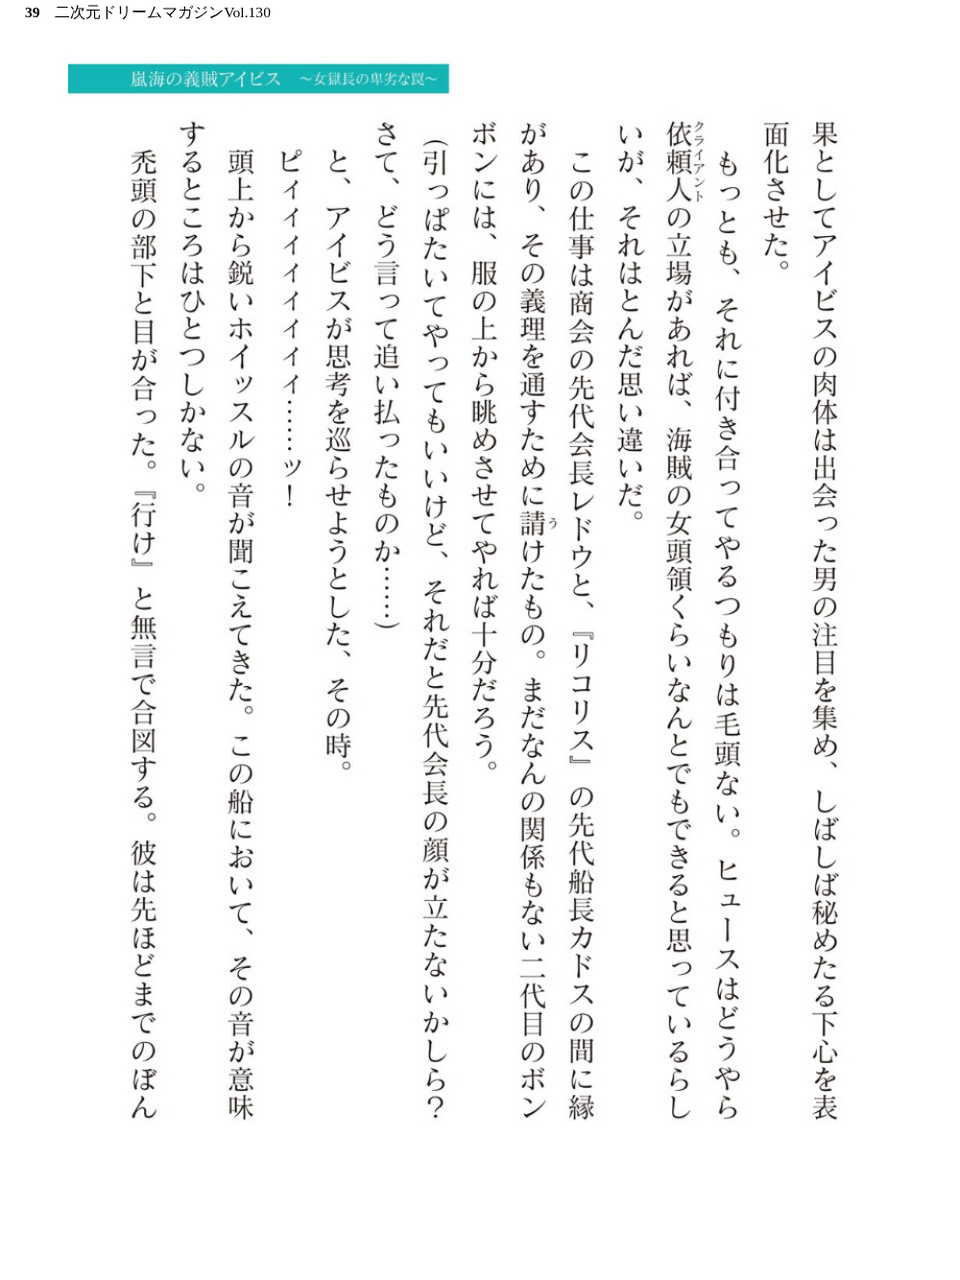 39 二次元ドリームマガジンVol.130
嵐海の義賊アイビス ～女獄長の卑劣な罠～
果としてアイビスの肉体は出会った男の注目を集め、しばしば秘めたる下心を表
面化させた。
もっとも、それに付き合ってやるつもりは毛頭ない。ヒュースはどうやら
依頼人クライアントの立場があれば、海賊の女頭領くらいなんとでもできると思っているらし
いが、それはとんだ思い違いだ。
この仕事は商会の先代会長レドウと、『リコリス』の先代船長カドスの間に縁
があり、その義理を通すために請うけたもの。まだなんの関係もない二代目のボン
ボンには、服の上から眺めさせてやれば十分だろう。
（引っぱたいてやってもいいけど、それだと先代会長の顔が立たないかしら？
さて、どう言って追い払ったものか……）
と、アイビスが思考を巡らせようとした、その時。
ピィィィィィィィ……ッ！
頭上から鋭いホイッスルの音が聞こえてきた。この船において、その音が意味
するところはひとつしかない。
禿頭の部下と目が合った。『行け』と無言で合図する。彼は先ほどまでのぼん